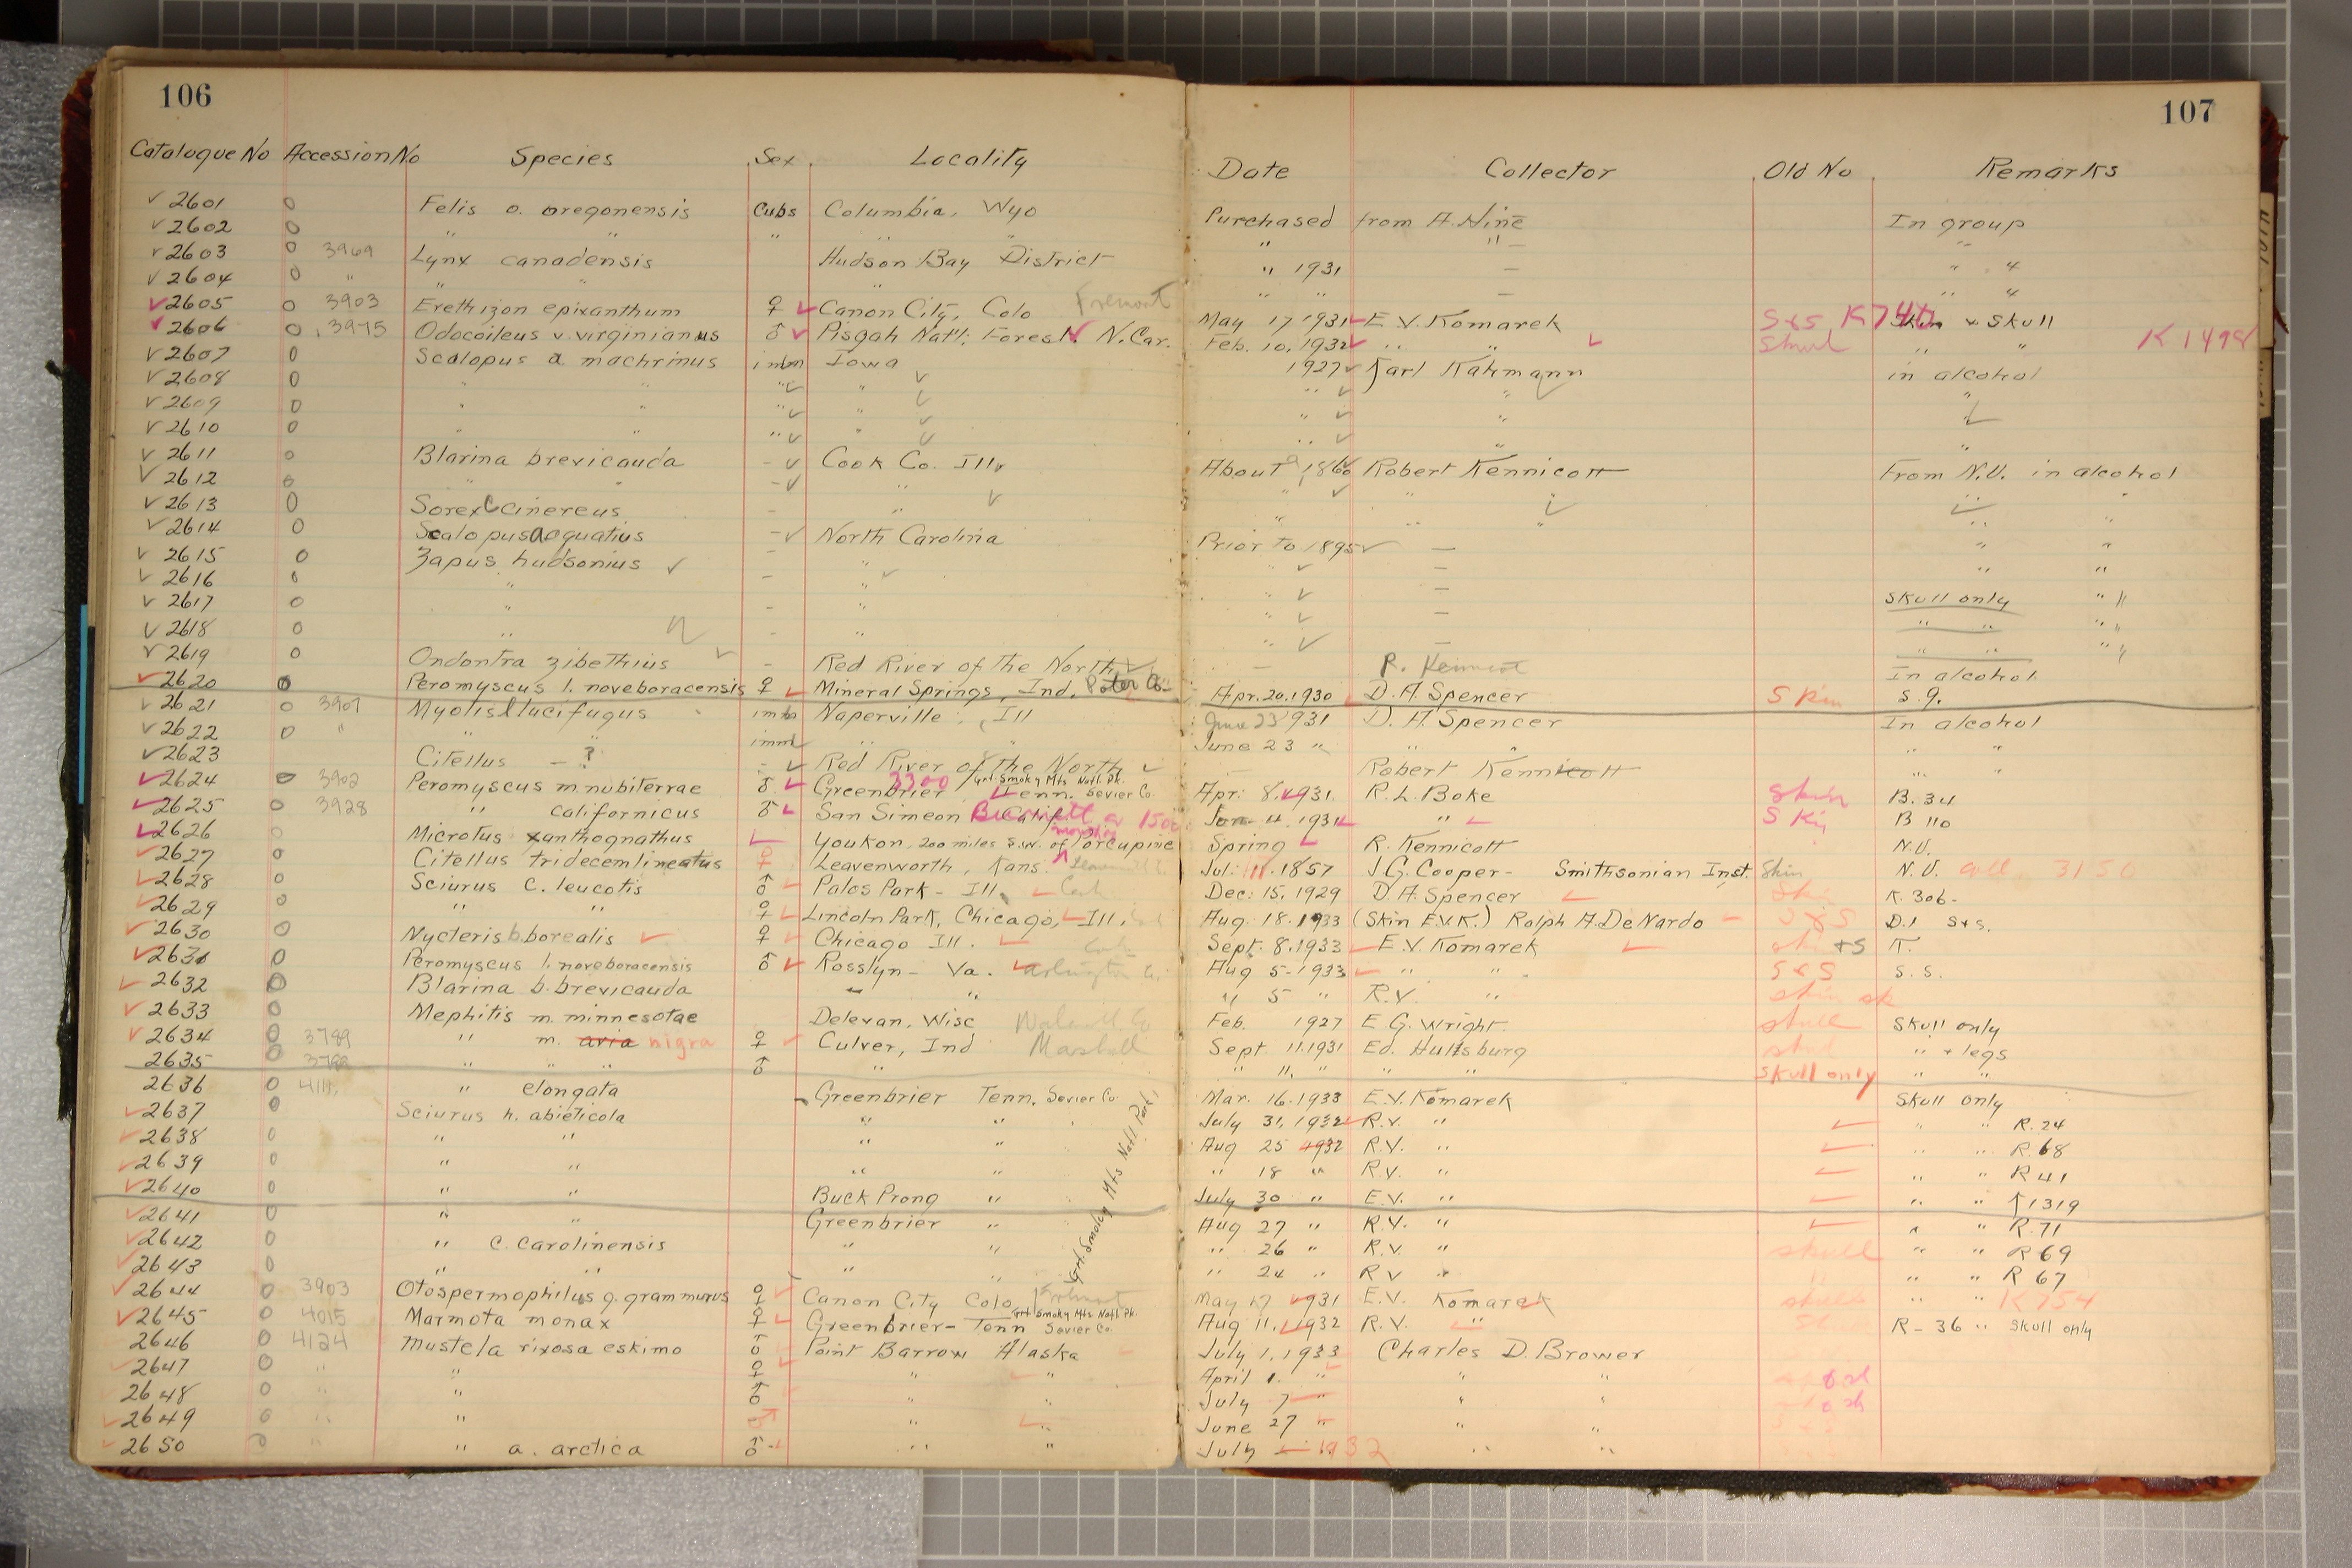 106
Catalogue No Accession No Species Sex Locality
2601 0 Felis o. oregonensis Cubs Columbia, Wyo
2602 0 " " " " "
2603 0 3969 Lynx canadensis Hudson Bay District
2604 0 " " "
2605 0 3903 Erethizon epixanthum ♀ Canon City, Colo Fremont
2606 0 3975 Odocoileus v. virginianus ♂ Pisgah Nat'l. Forest N. Car.
2607 0 Scalopus a machrinus imm Iowa
2608 0 " " " "
2609 0 " " " "
2610 0 " " " "
2611 0 Blarina brevicauda - Cook Co. Ill
2612 0 " " - "
2613 0 Sorex C cinereus - "
2614 0 Scalopus aquatius - North Carolina
2615 0 Zapus hudsonius - "
2616 0 " - "
2617 0 " - "
2618 0 " - "
2619 0 Ondontra zibethius - Red River of the North
2620 0 Peromyscus l. noveboracensis ♀ Mineral Springs, Ind. Porter Co.
2621 0 3907 Myotis l lucifugus imm Naperville, Ill
2622 0 " " " imm " "
2623 Citellus - ? - Red River of the North
2624 0 3902 Peromyscus m. nubiterrae ♂ Greenbrier 3300 Tenn. Grt. Smoky Mts Natl. Pk. Sevier Co.
2625 0 3928 " californicus ♂ San Simeon Calif 1500
2626 0 Microtus xanthognathus Youkon, 200 miles S.W. of Porcupine
2627 0 Citellus tridecemlineatus ♀ Leavenworth, Kans.
2628 0 Sciurus c. leucotis ♂ Palos Park - Ill. Cook
2629 0 " " ♀ Lincoln Park, Chicago, Ill.
2630 0 Nycteris b. borealis ♀ Chicago Ill.
2631 0 Peromyscus l. noveboracensis ♂ Rosslyn - Va. Arlington Co.
2632 0 Blarina b. brevicauda " "
2633 0 Mephitis m. minnesotae Delevan, Wisc Walworth Co
2634 0 3789 " m. avia nigra ♀ Culver, Ind Marshall
2635 0 3789 " " " ♂ "
2636 0 411 " elongata Greenbrier Tenn. Sevier Co
2637 0 Sciurus h. abieticola " "
2638 0 " " " "
2639 0 " " " "
2640 0 " " Buck Prong "
2641 0 " " Greenbrier "
2642 0 " C. carolinensis " "
2643 0 " " " "
Grt. Smoky Mts Natl. Park
2644 0 3903 Otospermophilus g. grammurus ♀ Canon City Colo Fremont
2645 0 4015 Marmota monax ♀ Greenbrier - Tenn Grt. Smoky Mts Natl Pk. Sevier Co.
2646 0 4124 Mustela rixosa eskimo ♂ Point Barrow Alaska
2647 0 " " ♀ " "
2648 0 " " ♂ " "
2649 0 " " ♂ " "
2650 0 " " a. arctica ♂ " "
107
Date Collector Old No Remarks
Purchased from A. Hine In group
" " - "
" 1931 - " 4
" " - " 4
May 17 1931 E.V. Komarek S&S K746 Skin & Skull
Feb. 10, 1932 " " Skull " " K 1498
1927 Karl Kahmann in alcohol
" " "
" "
" " "
About 1860 Robert Kennicott From N.U. in alcohol
" " " "
" " " " "
Prior to 1895 - " "
" - " "
" - Skull only " "
" - " " " "
" - " " " "
- R. Kennicot In alcohol
Apr. 20. 1930 D.A. Spencer Skin S. 9.
June 23 1931 D.A. Spencer In alcohol
June 23 " " " " "
Robert Kennicott " "
Apr: 8, 1931. R.L. Boke Skin B. 34
Jan 4. 1931 " " Skin B 110
Spring R. Kennicott N.U.
Jul: 11. 1857 J.G. Cooper - Smithsonian Inst. Skin N.U. 3150
Dec: 15, 1929 D.A. Spencer K. 306-
Aug. 18. 1933 (Skin E.V.K.) Rolph A. DeNardo S&S D.1 S+S.
Sept. 8. 1933 E.V. Komarek +S K.
Aug 5 - 1933 " " S&S S.S.
" 5 " R.V. " skin sk
Feb. 1927 E G. Wright. skull Skull only
Sept. 11. 1931 Ed. Hultsburg skull " + legs
" 11, " " " Skull only " "
Mar. 16. 1933 E.V. Komarek Skull only
July 31, 1932 R.V. " " " R. 24
Aug 25 1932 R.V. " " " R. 68
" 18 " R.V. " " " R 41
July 30 " E.V. " " " K1319
Aug 27 " R.V. " " " R. 71
" 26 " R.V. " skull " " R 69
" 24 " R V " " " " R 67
May 17 1931 E.V. Komarek skull " " K 754
Aug 11, 1932 R.V. " R - 36 " Skull only
July 1, 1933 Charles D. Brower
April 1. " " "
July 7 " " "
June 27 " " "
July 1932 " "